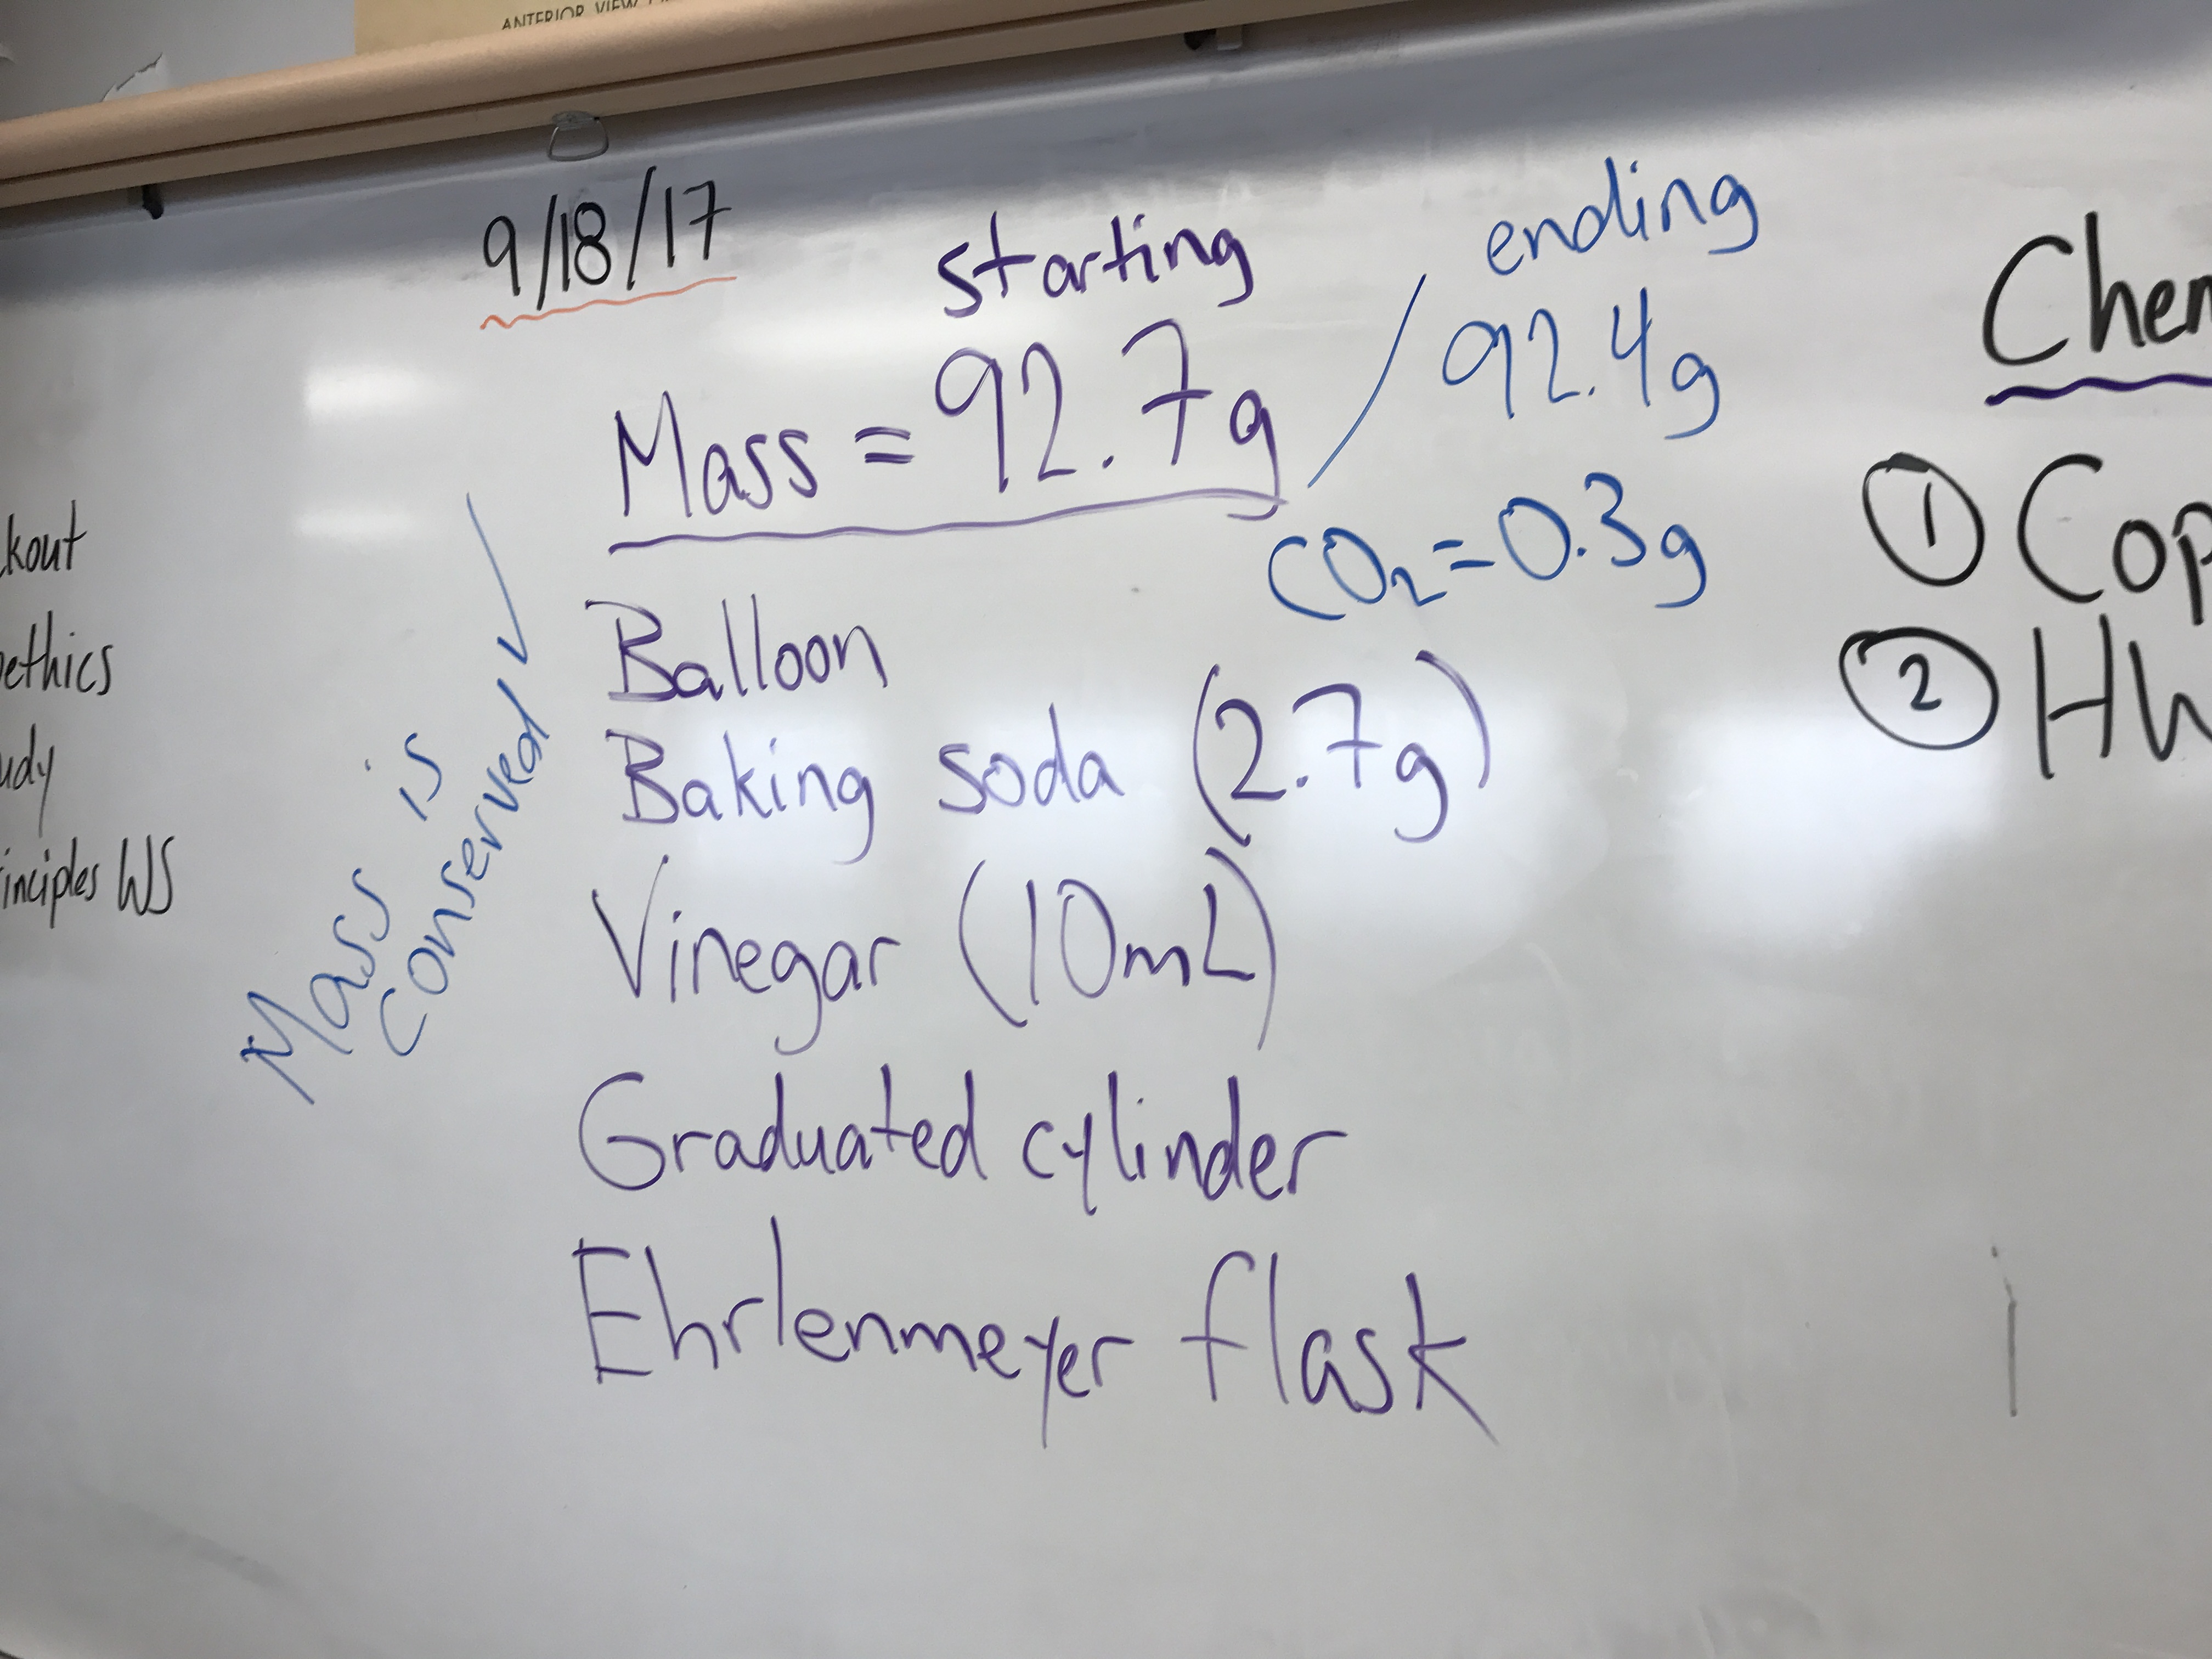 ANTERIOR VIEW
9/18/17
starting
ending
Mass = 92.7g / 92.4g
CO₂ = 0.3g
Mass is
conserved ✓
Balloon
Baking soda (2.7g)
Vinegar (10mL)
Graduated cylinder
Ehrlenmeyer flask
kout
ethics
udy
inciples WS
Chem
① Cop
② HW